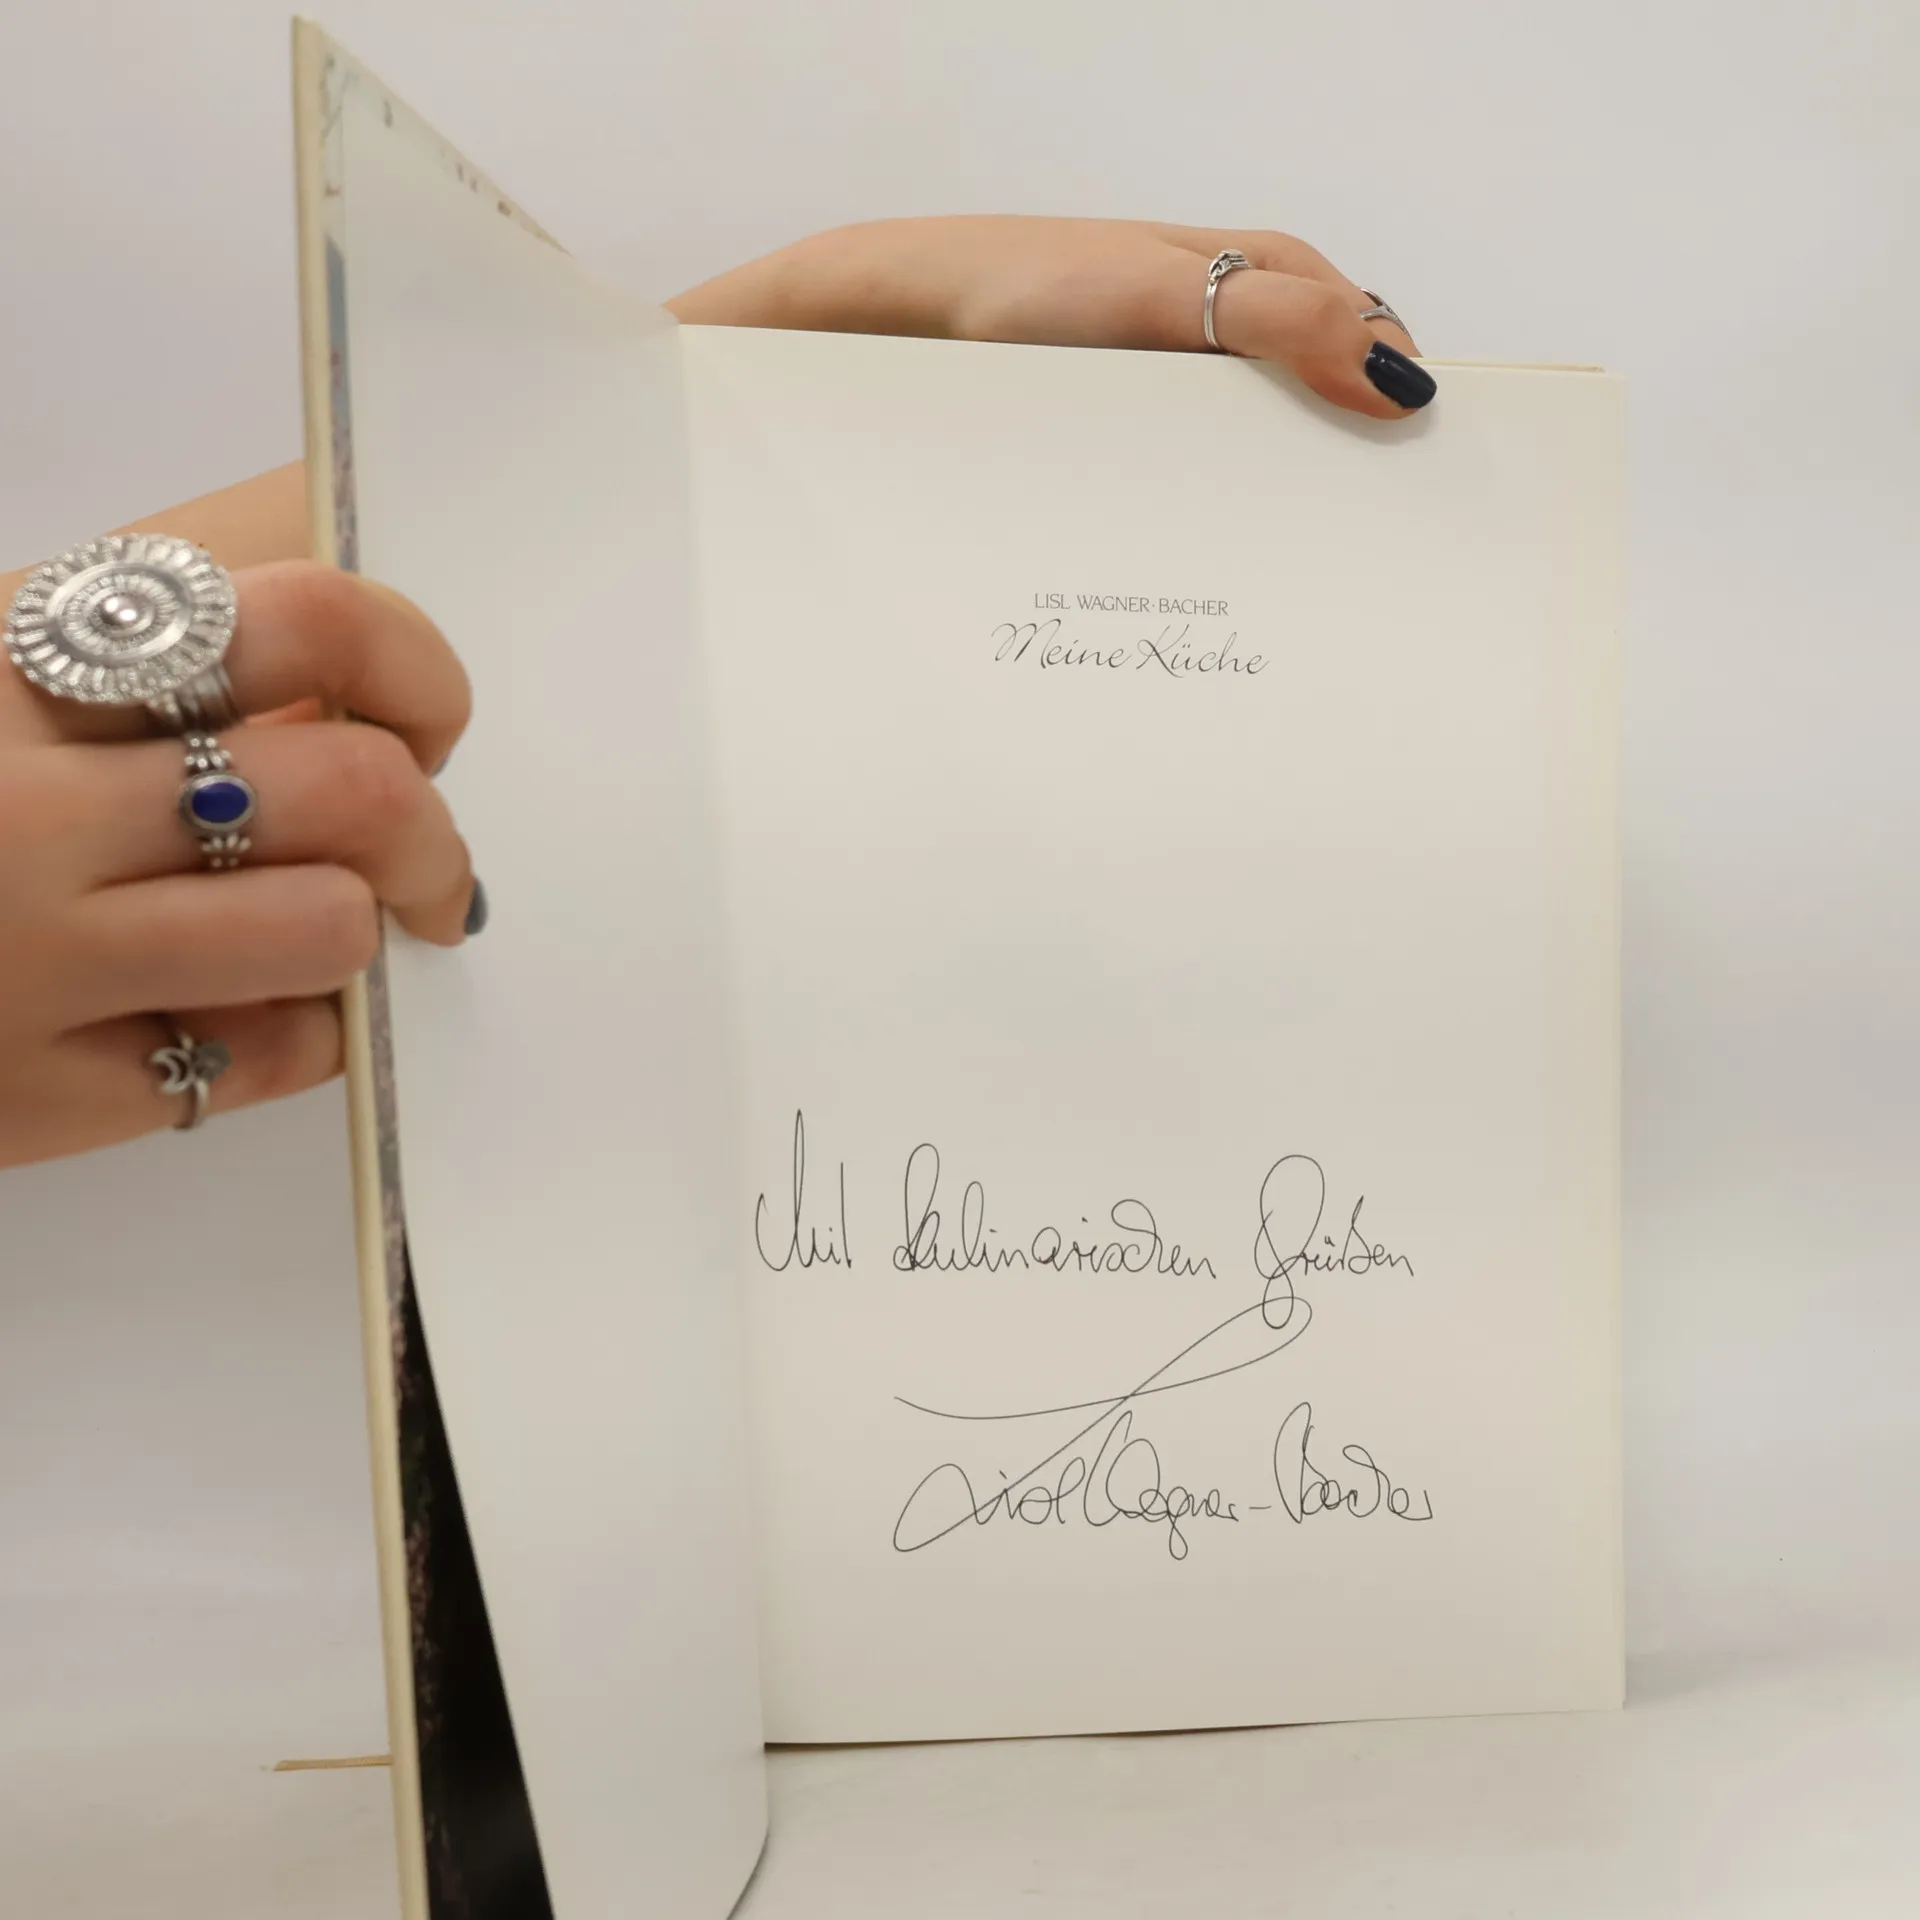 LISL WAGNER·BACHER
Meine Küche
Mit kulinarischen Grüßen
Lisl Wagner-Bacher